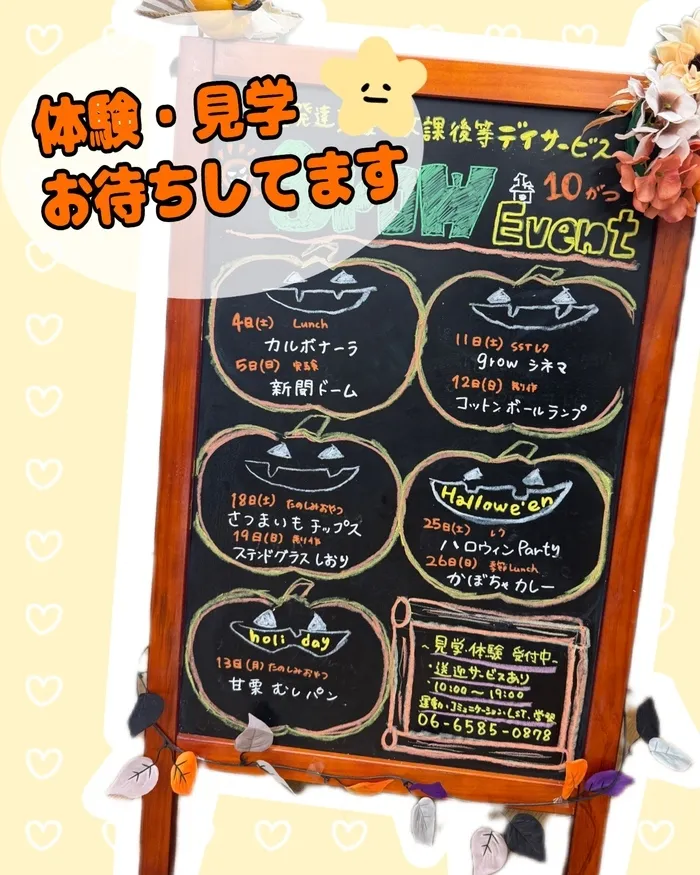 体験・見学
お待ちしてます
課後等デイサービス
Grow
10がつ
Event
4日(土) Lunch
カルボナーラ
5日(日) 実験
新聞ドーム
11日(土) SSTレク
grow シネマ
12日(日) 制作
コットンボールランプ
18日(土) たのしみおやつ
さつまいもチップス
19日(日) 制作
ステンドグラスしおり
Hallowe'en
25日(土) レク
ハロウィンParty
26日(日) 季節Lunch
かぼちゃカレー
holiday
13日(月) たのしみおやつ
甘栗むしパン
~見学・体験 受付中~
・送迎サービスあり
10:00~19:00
運動・コミュニケーション・LST・学習
06-6585-0878